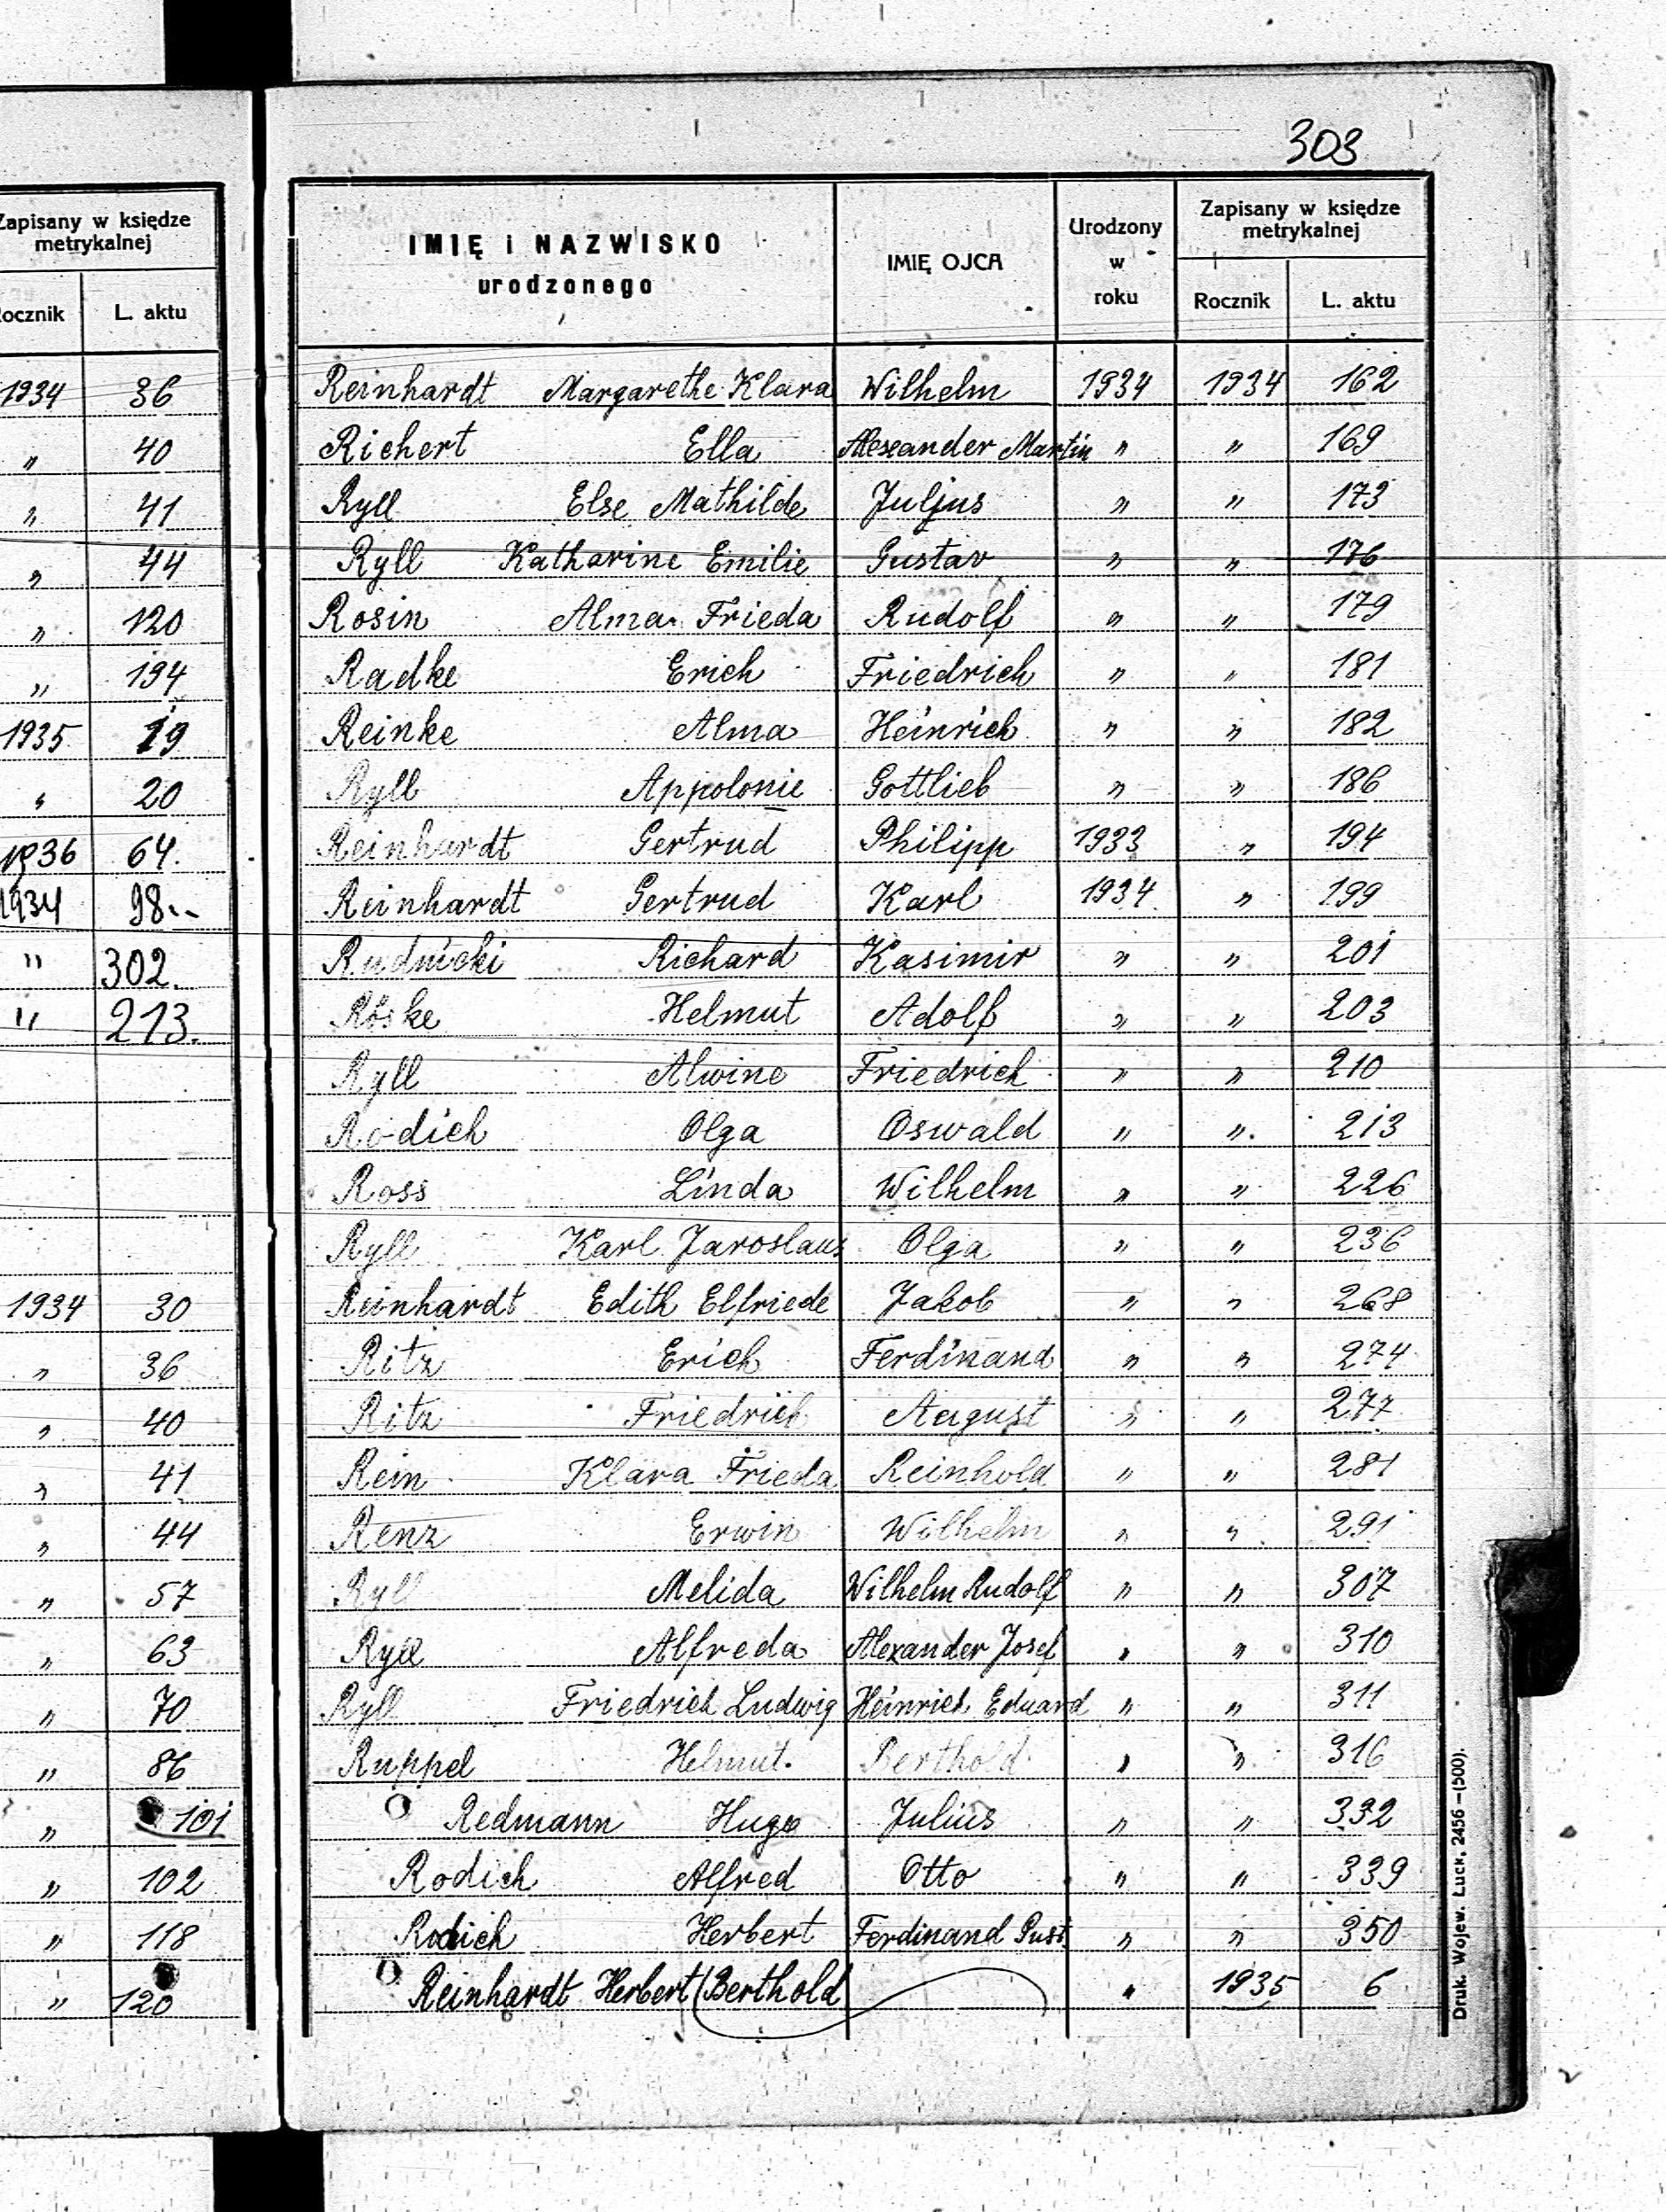 303
Zapisany w księdze
metrykalnej
ocznik L. aktu
1934 36
" 40
" 41
" 44
" 120
" 194
1935 19
" 20
1936 64.
1934 98
" 302.
" 213.
1934 30
" 36
" 40
" 41
" 44
" 57
" 63
" 70
" 86
" 101
" 102
" 118
" 120
IMIĘ i NAZWISKO
urodzonego
IMIĘ OJCA
Urodzony
w
roku
Zapisany w księdze
metrykalnej
Rocznik L. aktu
Reinhardt Margarethe Klara Wilhelm 1934 1934 162
Richert Ella Alexander Martin " " 169
Ryll Else Mathilde Juljus " " 173
Ryll Katharine Emilie Gustav " " 176
Rosin Alma Frieda Rudolf " " 179
Radke Erich Friedrich " " 181
Reinke Alma Heinrich " " 182
Ryll Appolonie Gottlieb " " 186
Reinhardt Gertrud Philipp 1933 " 194
Reinhardt Gertrud Karl 1934 " 199
Rudnicki Richard Kasimir " " 201
Röske Helmut Adolf " " 203
Ryll Alwine Friedrich " " 210
Rodich Olga Oswald " " 213
Ross Linda Wilhelm " " 226
Ryll Karl Jaroslaus Olga " " 236
Reinhardt Edith Elfriede Jakob " " 268
Ritz Erich Ferdinand " " 274
Ritz Friedrich August " " 277
Rein Klara Frieda Reinhold " " 281
Renz Erwin Wilhelm " " 291
Ryll Melida Wilhelm Rudolf " " 307
Ryll Alfreda Alexander Josef " " 310
Ryll Friedrich Ludwig Heinrich Eduard " " 311
Ruppel Helmut. Berthold " " 316
Redmann Hugo Julius " " 332
Rodich Alfred Otto " " 339
Rodich Herbert Ferdinand Gust. " " 350
Reinhardt Herbert (Berthold " 1935 6
Druk. Wojew. Łuck, 2456 —(500).